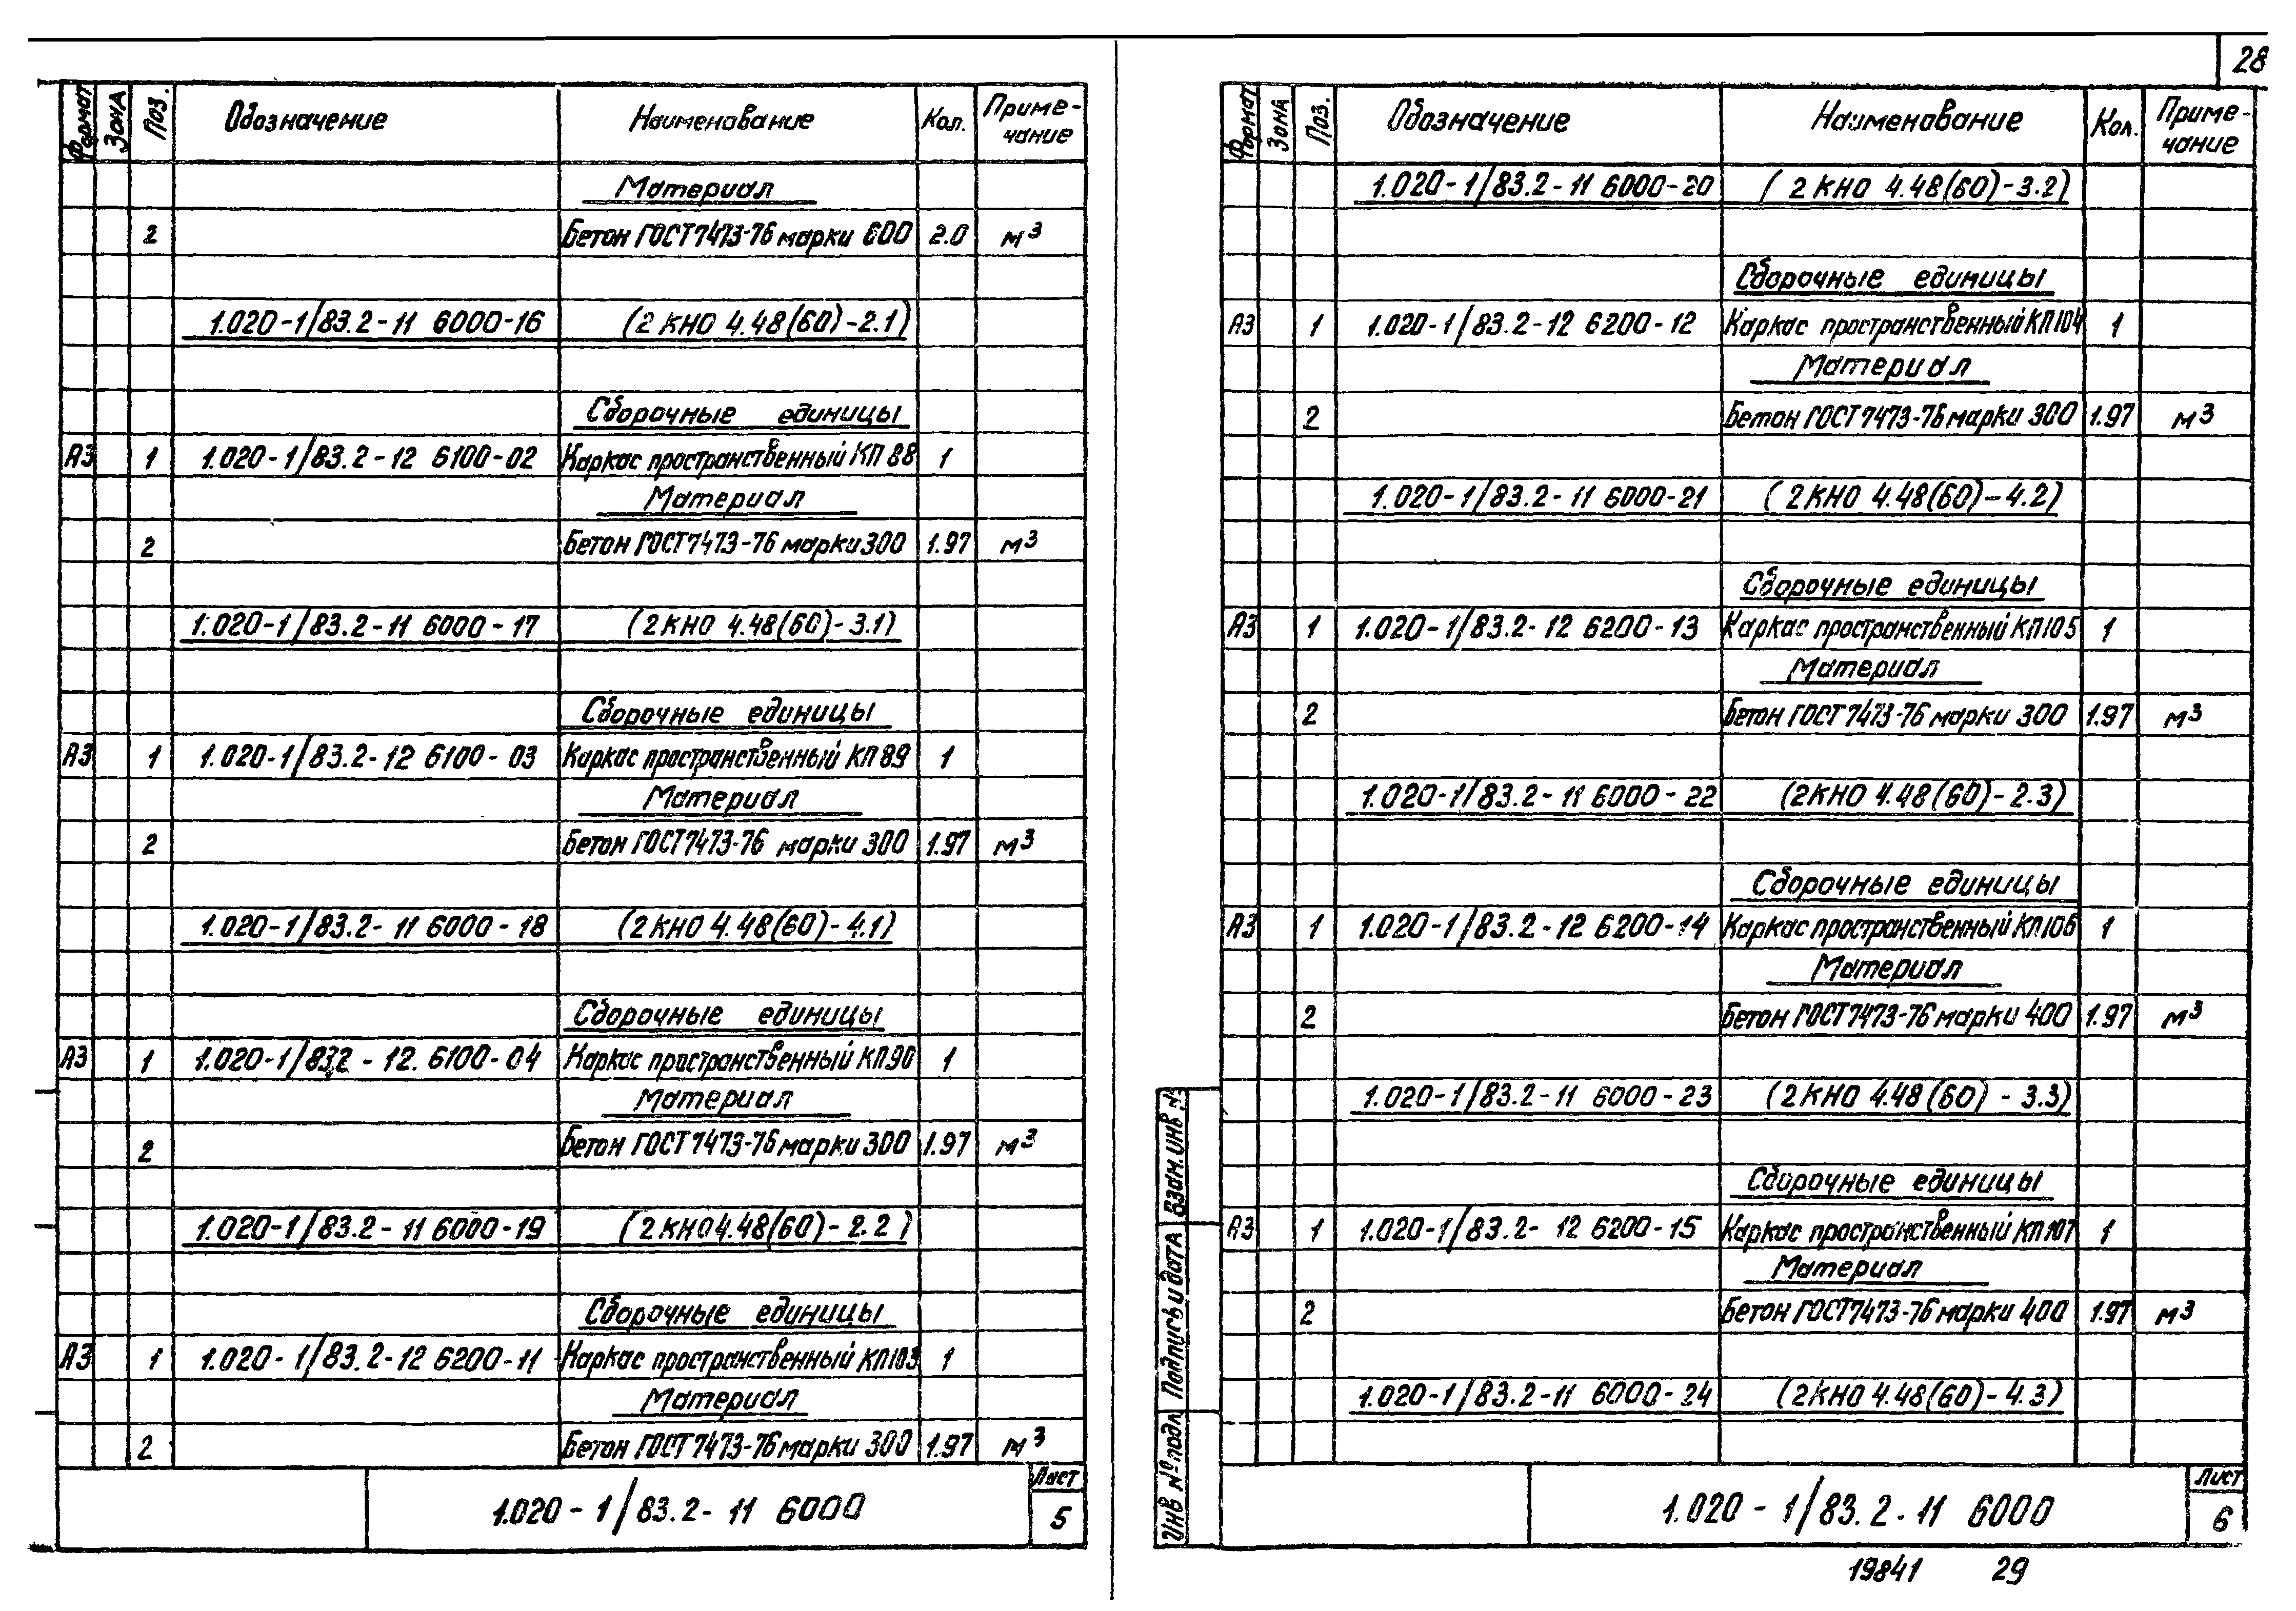 28
Формат Зона Поз. Обозначение Наименование Кол. Приме-
чание
Материал
2 Бетон ГОСТ 7473-76 марки 600 2.0 м3
1.020-1/83.2-11 6000-16 (2 КНО 4.48(60)-2.1)
Сборочные единицы
А3 1 1.020-1/83.2-12 6100-02 Каркас пространственный КП 88 1
Материал
2 Бетон ГОСТ 7473-76 марки 300 1.97 м3
1.020-1/83.2-11 6000-17 (2 КНО 4.48(60)-3.1)
Сборочные единицы
А3 1 1.020-1/83.2-12 6100-03 Каркас пространственный КП 89 1
Материал
2 Бетон ГОСТ 7473-76 марки 300 1.97 м3
1.020-1/83.2-11 6000-18 (2 КНО 4.48(60)-4.1)
Сборочные единицы
А3 1 1.020-1/83.2-12. 6100-04 Каркас пространственный КП 90 1
Материал
2 Бетон ГОСТ 7473-76 марки 300 1.97 м3
1.020-1/83.2-11 6000-19 (2 КНО 4.48(60)-2.2)
Сборочные единицы
А3 1 1.020-1/83.2-12 6200-11 Каркас пространственный КП 103 1
Материал
2 Бетон ГОСТ 7473-76 марки 300 1.97 м3
1.020-1/83.2-11 6000
Лист
5
Формат Зона Поз. Обозначение Наименование Кол. Приме-
чание
1.020-1/83.2-11 6000-20 (2 КНО 4.48(60)-3.2)
Сборочные единицы
А3 1 1.020-1/83.2-12 6200-12 Каркас пространственный КП 104 1
Материал
2 Бетон ГОСТ 7473-76 марки 300 1.97 м3
1.020-1/83.2-11 6000-21 (2 КНО 4.48(60)-4.2)
Сборочные единицы
А3 1 1.020-1/83.2-12 6200-13 Каркас пространственный КП 105 1
Материал
2 Бетон ГОСТ 7473-76 марки 300 1.97 м3
1.020-1/83.2-11 6000-22 (2 КНО 4.48(60)-2.3)
Сборочные единицы
А3 1 1.020-1/83.2-12 6200-14 Каркас пространственный КП 106 1
Материал
2 Бетон ГОСТ 7473-76 марки 400 1.97 м3
1.020-1/83.2-11 6000-23 (2 КНО 4.48(60)-3.3)
Сборочные единицы
А3 1 1.020-1/83.2-12 6200-15 Каркас пространственный КП 107 1
Материал
2 Бетон ГОСТ 7473-76 марки 400 1.97 м3
1.020-1/83.2-11 6000-24 (2 КНО 4.48(60)-4.3)
Инв № подл Подпись и дата Взам. инв №
1.020-1/83.2-11 6000
Лист
6
19841 29